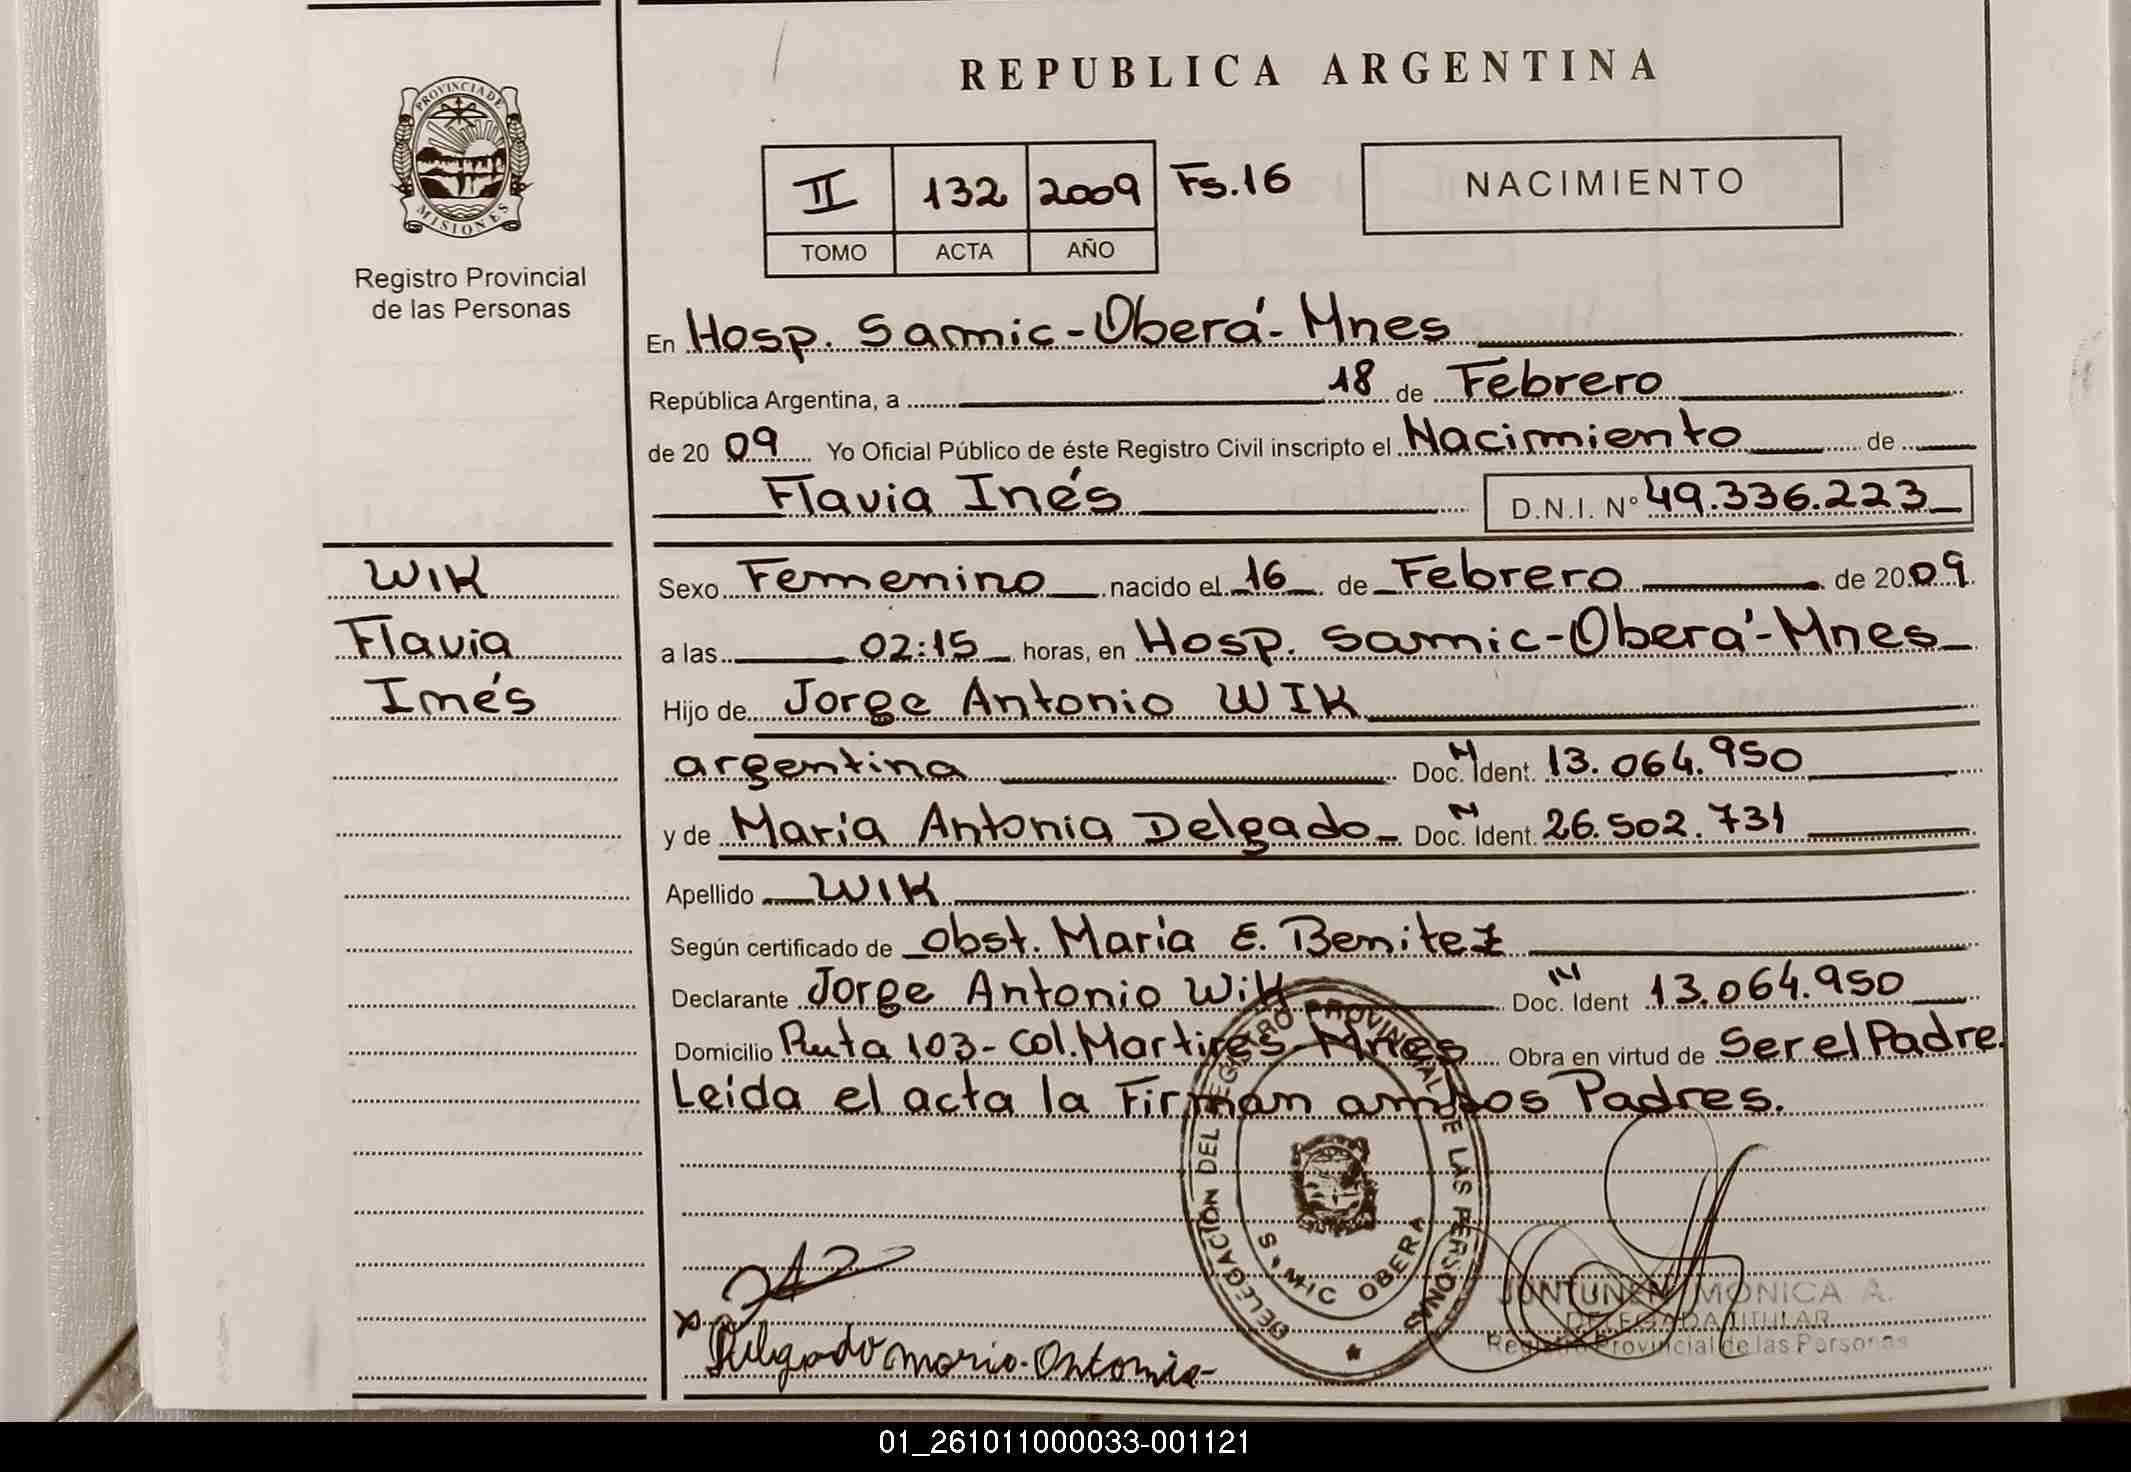 REPUBLICA ARGENTINA
PROVINCIA DE
MISIONES
Registro Provincial
de las Personas
II 132 2009 Fs.16
TOMO ACTA AÑO
NACIMIENTO
En Hosp. Samic-Oberá-Mnes
República Argentina, a 18 de Febrero
de 2009 Yo Oficial Público de éste Registro Civil inscripto el Nacimiento de
Flavia Inés D.N.I. Nº 49.336.223
WIK
Flavia
Inés
Sexo Femenino nacido el 16 de Febrero de 2009
a las 02:15 horas, en Hosp. Samic-Oberá-Mnes
Hijo de Jorge Antonio WIK
argentina Doc. Ident. 13.064.950
y de María Antonia Delgado Doc. Ident. 26.502.731
Apellido WIK
Según certificado de Obst. María E. Benitez
Declarante Jorge Antonio Wik Doc. Ident 13.064.950
Domicilio Ruta 103-Col.Martires-Mnes Obra en virtud de Ser el Padre.
Leída el acta la Firman ambos Padres.
DELEGACIÓN DEL REGISTRO PROVINCIAL DE LAS PERSONAS
SAMIC OBERA
Delgado maria Antonia
JUNTUNEN MONICA A.
DELEGADA TITULAR
Registro Provincial de las Personas
01_261011000033-001121